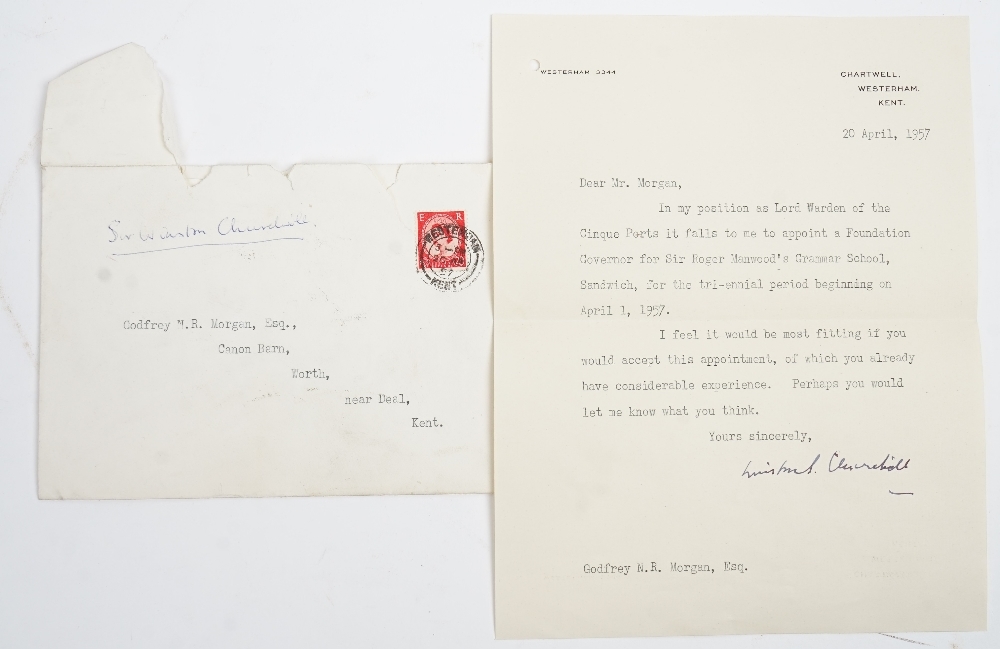 Sir Winston Churchill
E R
WESTERHAM
KENT
Godfrey N.R. Morgan, Esq.,
Canon Barn,
Worth,
near Deal,
Kent.
WESTERHAM 3344
CHARTWELL,
WESTERHAM,
KENT.
20 April, 1957
Dear Mr. Morgan,
In my position as Lord Warden of the
Cinque Ports it falls to me to appoint a Foundation
Governor for Sir Roger Manwood's Grammar School,
Sandwich, for the tri-ennial period beginning on
April 1, 1957.
I feel it would be most fitting if you
would accept this appointment, of which you already
have considerable experience. Perhaps you would
let me know what you think.
Yours sincerely,
Winston S. Churchill
Godfrey N.R. Morgan, Esq.